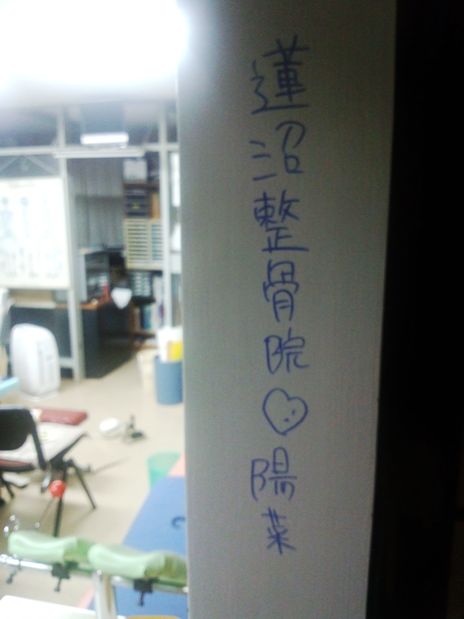 蓮沼整骨院♡陽菜